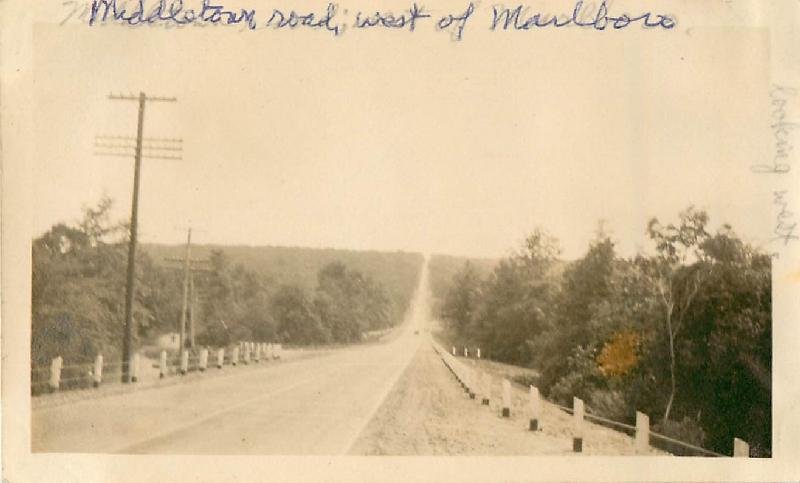 Middletown road, west of Marlboro
looking west